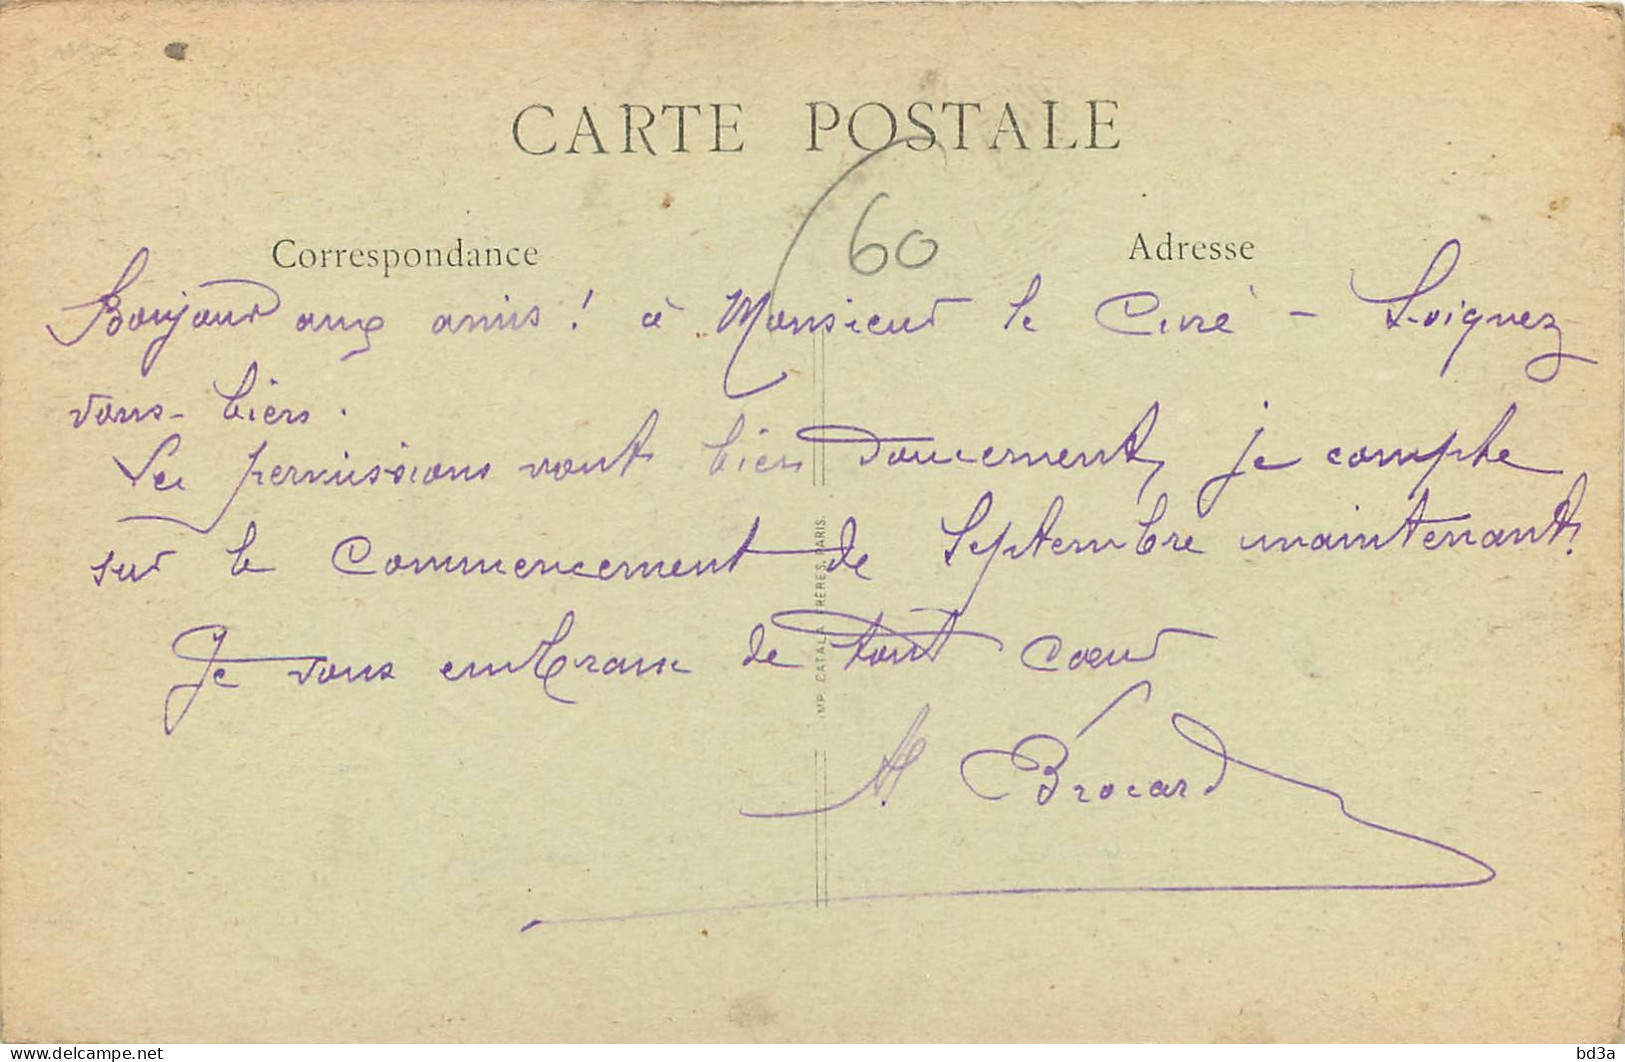 CARTE POSTALE
60
Correspondance
Adresse
Bonjour aux amis ! à Monsieur le Curé - Soignez
vous-bien.
Les permissions vont bien doucement, je compte
sur le commencement de Septembre maintenant.
Je vous embrasse de tout cœur
Brocard
IMP. CATALA FRÈRES, PARIS.
delcampe.net
bd3a